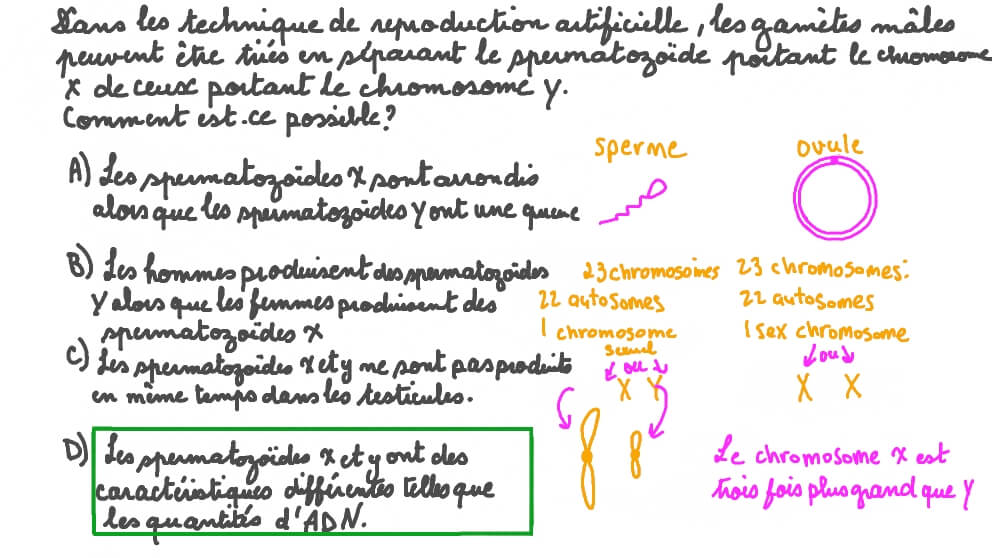 Dans les technique de reproduction artificielle, les gamètes mâles
peuvent être triés en séparant le spermatozoïde portant le chromosome
X de ceux portant le chromosome Y.
Comment est-ce possible?
A) Les spermatozoïdes X sont arrondis
alors que les spermatozoïdes Y ont une queue
B) Les hommes produisent des spermatozoïdes
Y alors que les femmes produisent des
spermatozoïdes X
C) Les spermatozoïdes X et Y ne sont pas produits
en même temps dans les testicules.
D) Les spermatozoïdes X et Y ont des
caractéristiques différentes telles que
les quantités d'ADN.
sperme
23 chromosomes
22 autosomes
1 chromosome
sexuel
ou
X Y
ovule
23 chromosomes:
22 autosomes
1 sex chromosome
ou
X X
Le chromosome X est
trois fois plus grand que Y